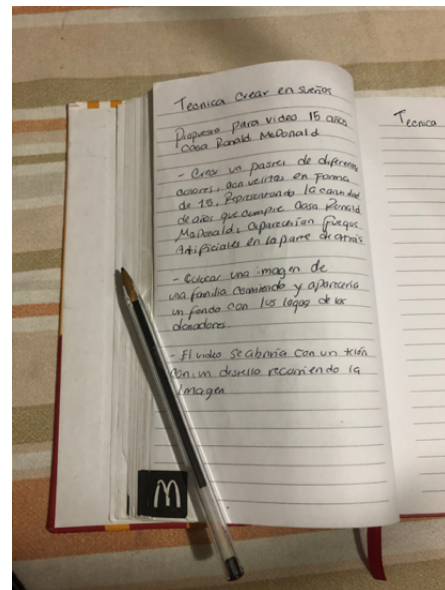 Tecnica Crear en sueños
Propuesta para video 15 años
Casa Ronald McDonald
- Crear un pastel de diferentes
colores, con velitas en forma
de 15, Representando la cantidad
de años que cumple Casa Ronald
McDonald, aparecerían fuegos
Artificiales en la parte de atrás
- Colocar una imagen de
una familia comiendo y aparecería
un fondo con los logos de los
donadores.
- El video se abriría con un telón
con un destello recorriendo la
imagen
Tecnica
M